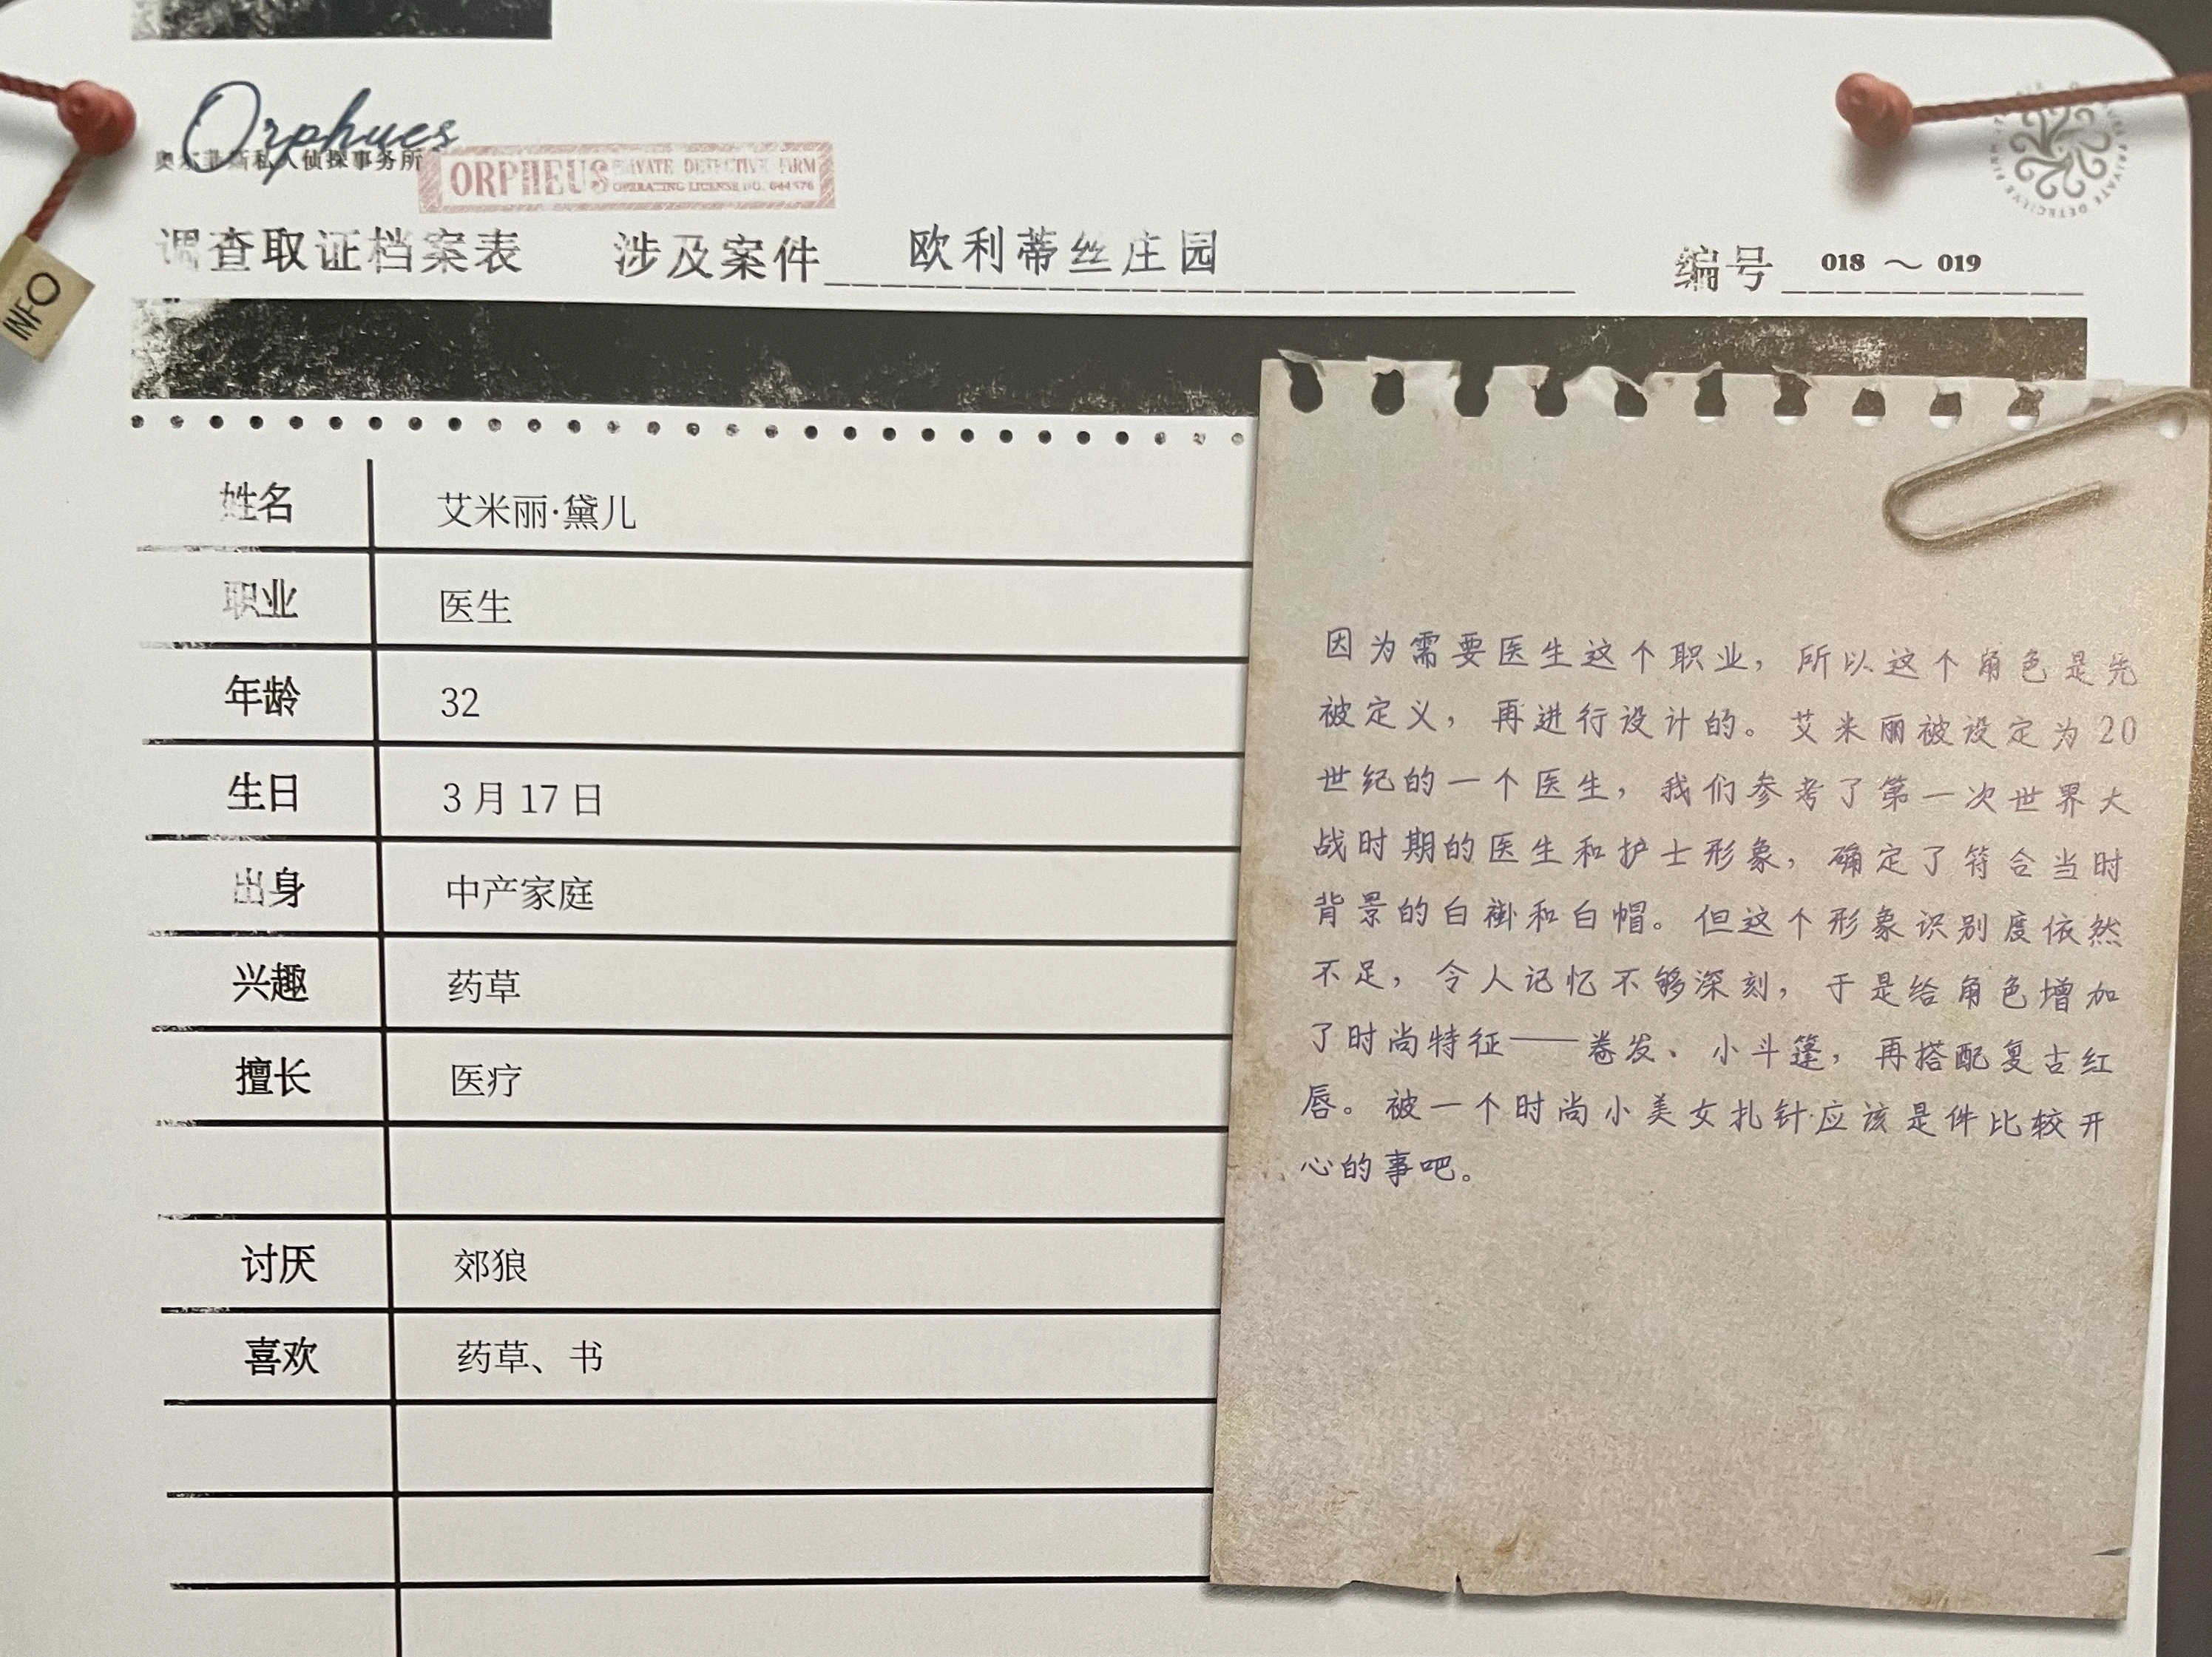 Orphues
奥尔菲斯私人侦探事务所
ORPHEUS PRIVATE DETECTIVE FIRM
OPERATING LICENSE NO.
调查取证档案表 涉及案件 欧利蒂丝庄园 编号 018 ～ 019
INFO
姓名 艾米丽·黛儿
职业 医生
年龄 32
生日 3 月 17 日
出身 中产家庭
兴趣 药草
擅长 医疗
讨厌 郊狼
喜欢 药草、书
因为需要医生这个职业，所以这个角色是先
被定义，再进行设计的。艾米丽被设定为 20
世纪的一个医生，我们参考了第一次世界大
战时期的医生和护士形象，确定了符合当时
背景的白褂和白帽。但这个形象识别度依然
不足，令人记忆不够深刻，于是给角色增加
了时尚特征——卷发、小斗篷，再搭配复古红
唇。被一个时尚小美女扎针应该是件比较开
心的事吧。